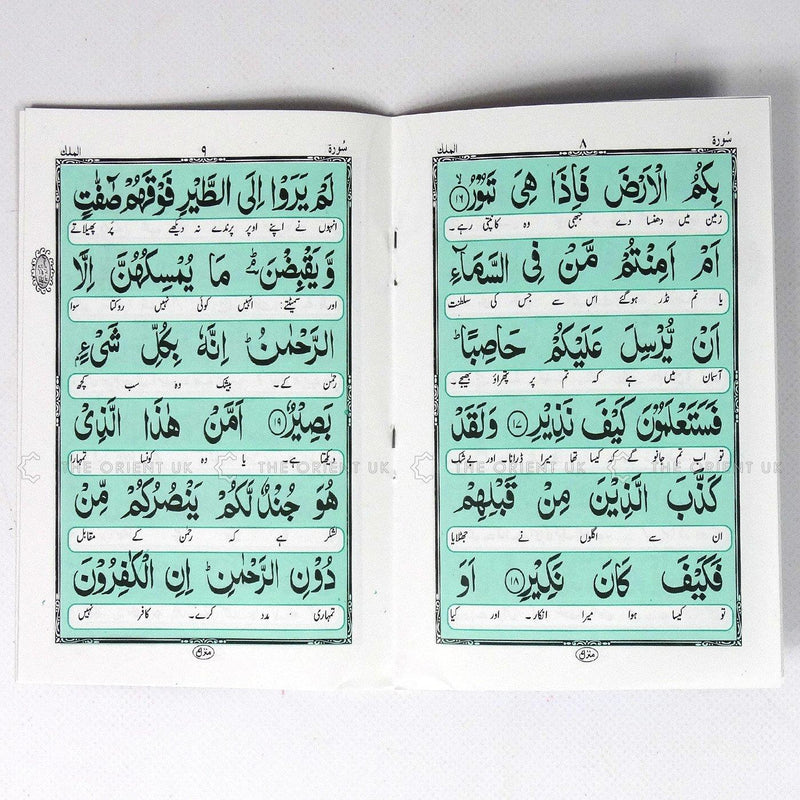 سُورة ٨ الملك
بِكُمُ الْاَرْضَ فَاِذَا هِیَ تَمُوْرُ ۙ﴿۱۶﴾
زمین میں دھنسا دے جبھی وہ کانپتی رہے۔
اَمْ اَمِنْتُمْ مَّنْ فِی السَّمَآءِ
یا تم نڈر ہوگئے اس سے جس کی سلطنت
اَنْ یُّرْسِلَ عَلَیْكُمْ حَاصِبًا ؕ
آسمان میں ہے کہ تم پر پتھراؤ بھیجے۔
فَسَتَعْلَمُوْنَ كَیْفَ نَذِیْرِ ﴿۱۷﴾ وَلَقَدْ
تو اب تم جانو گے کہ کیسا تھا میرا ڈرانا۔ اور بےشک
كَذَّبَ الَّذِیْنَ مِنْ قَبْلِهِمْ
ان سے اگلوں نے جھٹلایا
فَكَیْفَ كَانَ نَكِیْرِ ﴿۱۸﴾ اَوَ
تو کیسا ہوا میرا انکار۔ اور کیا
منزل
سُورة ٩ الملك
لَمْ یَرَوْا اِلَی الطَّیْرِ فَوْقَهُمْ صٰٓفّٰتٍ
انہوں نے اپنے اوپر پرندے نہ دیکھے پر پھیلاتے
وَّیَقْبِضْنَ ؔۘؕ مَا یُمْسِكُهُنَّ اِلَّا
اور سمیٹتے؛ انہیں کوئی نہیں روکتا سوا
الرَّحْمٰنُ ؕ اِنَّهٗ بِكُلِّ شَیْءٍۭ
رحمٰن کے۔ بیشک وہ سب کچھ
بَصِیْرٌ ﴿۱۹﴾ اَمَّنْ هٰذَا الَّذِیْ
دیکھتا ہے۔ یا وہ کونسا تمہارا
هُوَ جُنْدٌ لَّكُمْ یَنْصُرُكُمْ مِّنْ
لشکر ہے کہ رحمٰن کے مقابل
دُوْنِ الرَّحْمٰنِ ؕ اِنِ الْكٰفِرُوْنَ
تمہاری مدد کرے۔ کافر نہیں
منزل
THE ORIENT UK THE ORIENT UK THE ORIENT UK